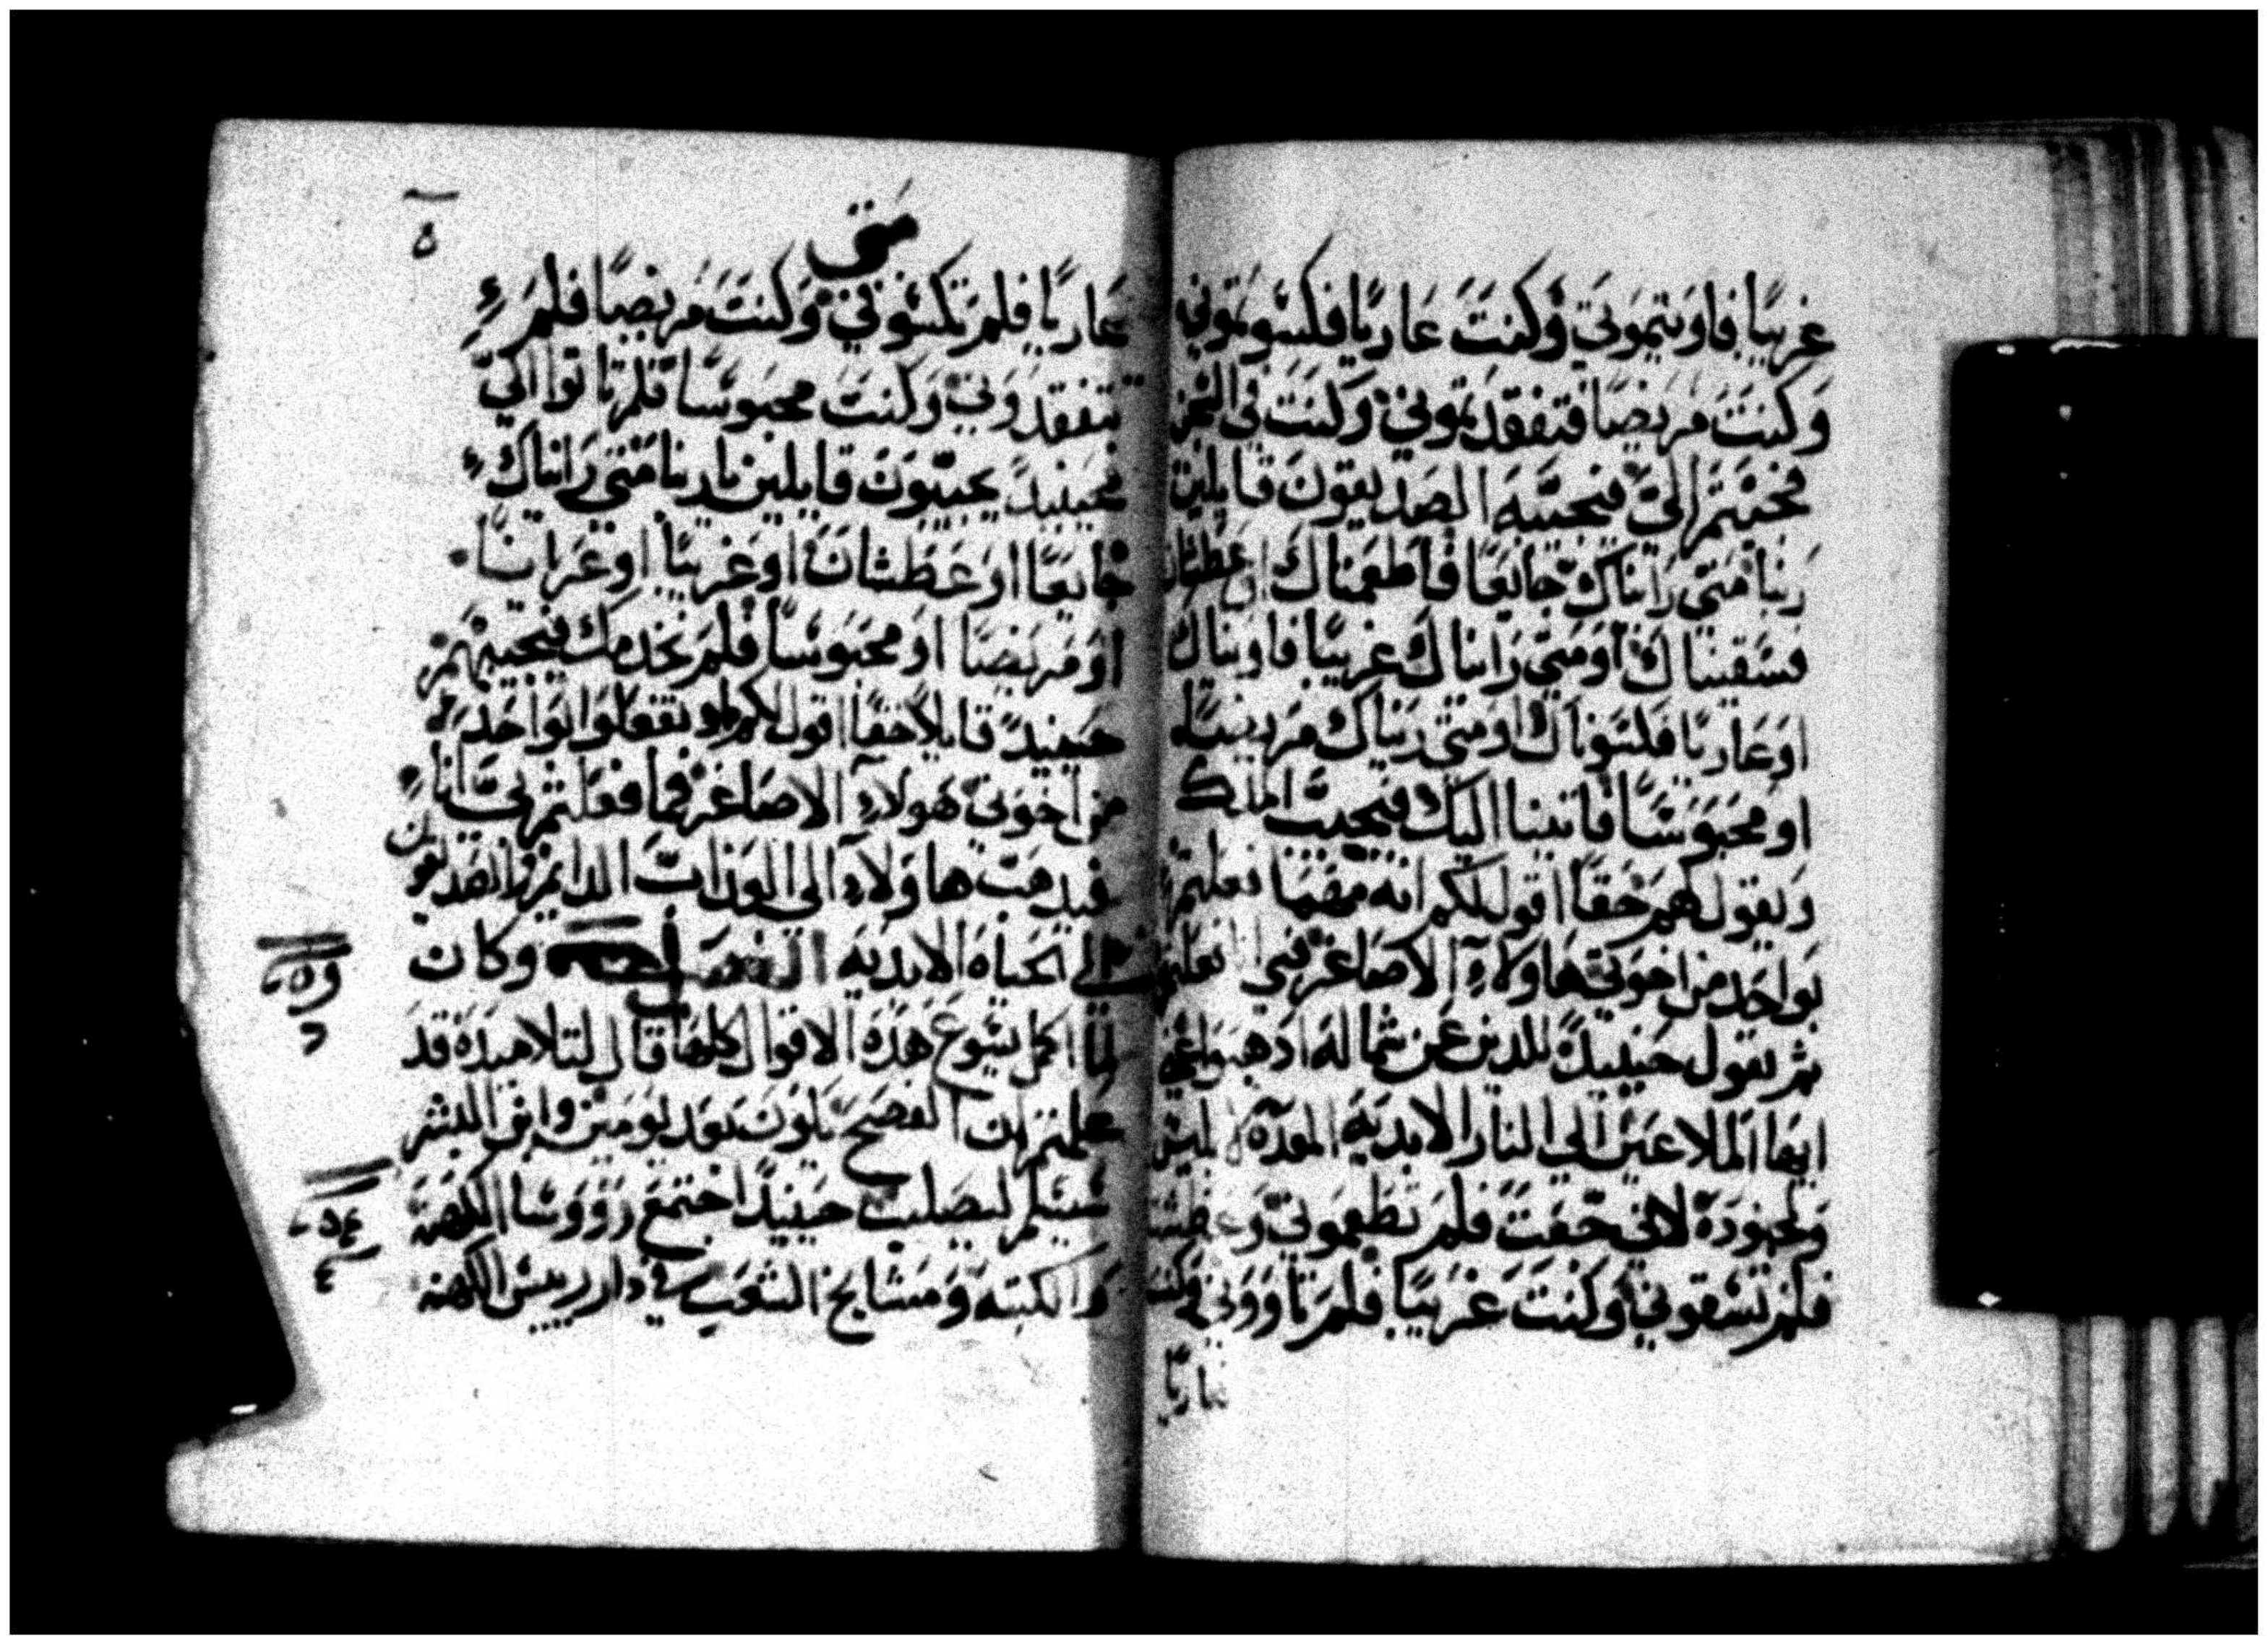 غريبًا فاويتموني وكنت عاريًا فكسوتموني
وكنت مريضًا فتفقدتموني وكنت في السجن
فجيتم الي فيجيبه الصديقون قايلين
ربنا متى رايناك جايعًا فاطعمناك او عطشان
فسقيناك او متى رايناك غريبًا فاويناك
او عاريًا فكسوناك او متى ريناك مريضًا
او محبوسًا فاتينا اليك فيجيب الملك
ويقول لهم حقًا اقول لكم انه مهما فعلتم
بواحد من اخوتي هاولاء الاصاغر فبي فعلتم
ثم يقول حينيدً للدين عن شماله ادهبوا عني
ايها الملاعين الي النار الابديه المعده لابليس
ولجنوده لاني جعت فلم تطعموني وعطشت
فلم تسقوني وكنت غريبًا فلم تاووني وكنت
عاريًا
متى
عاريًا فلم تكسوني وكنت مريضًا فلم
تتفقدوني وكنت محبوسًا فلم تاتوا الي
فحينيدً يجيبون قايلين ياربنا متى رايناك
جايعًا او عطشانًا او غريبًا او عريانًا
او مريضًا او محبوسًا فلم نخدمك فيجيبهم
حينيدً قايلاً حقًا اقول لكم لم تفعلوا بواحد
من اخوتي هولاء الاصاغر فما فعلتم بي انا
فيدهب هاولاء الى العذاب الدايم والصديقون
الى الحياه الابديه الفصل وكان
لما اكمل يسوع هذه الاقوال كلها قال لتلاميذه قد
علمتم ان الفصح يكون بعد يومين وابن البشر
سيسلم ليصلب حينيدًا اجتمع رووسا الكهنة
والكتبه ومشايخ الشعب في دار رييس الكهنه